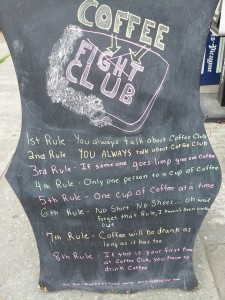 COFFEE
FIGHT
CLUB
1st Rule - You always talk about Coffee Club
2nd Rule - YOU ALWAYS talk about Coffee Club
3rd Rule - If some one goes limp give em Coffee
4th Rule - Only one person to a cup of Coffee
5th Rule - One cup of Coffee at a time
6th Rule - No Shirt No Shoes... oh wait
forget that Rule,
out
7th Rule - Coffee will be drank as
long as it has too
8th Rule - If this is your first time
at Coffee Club, you have to
drink Coffee